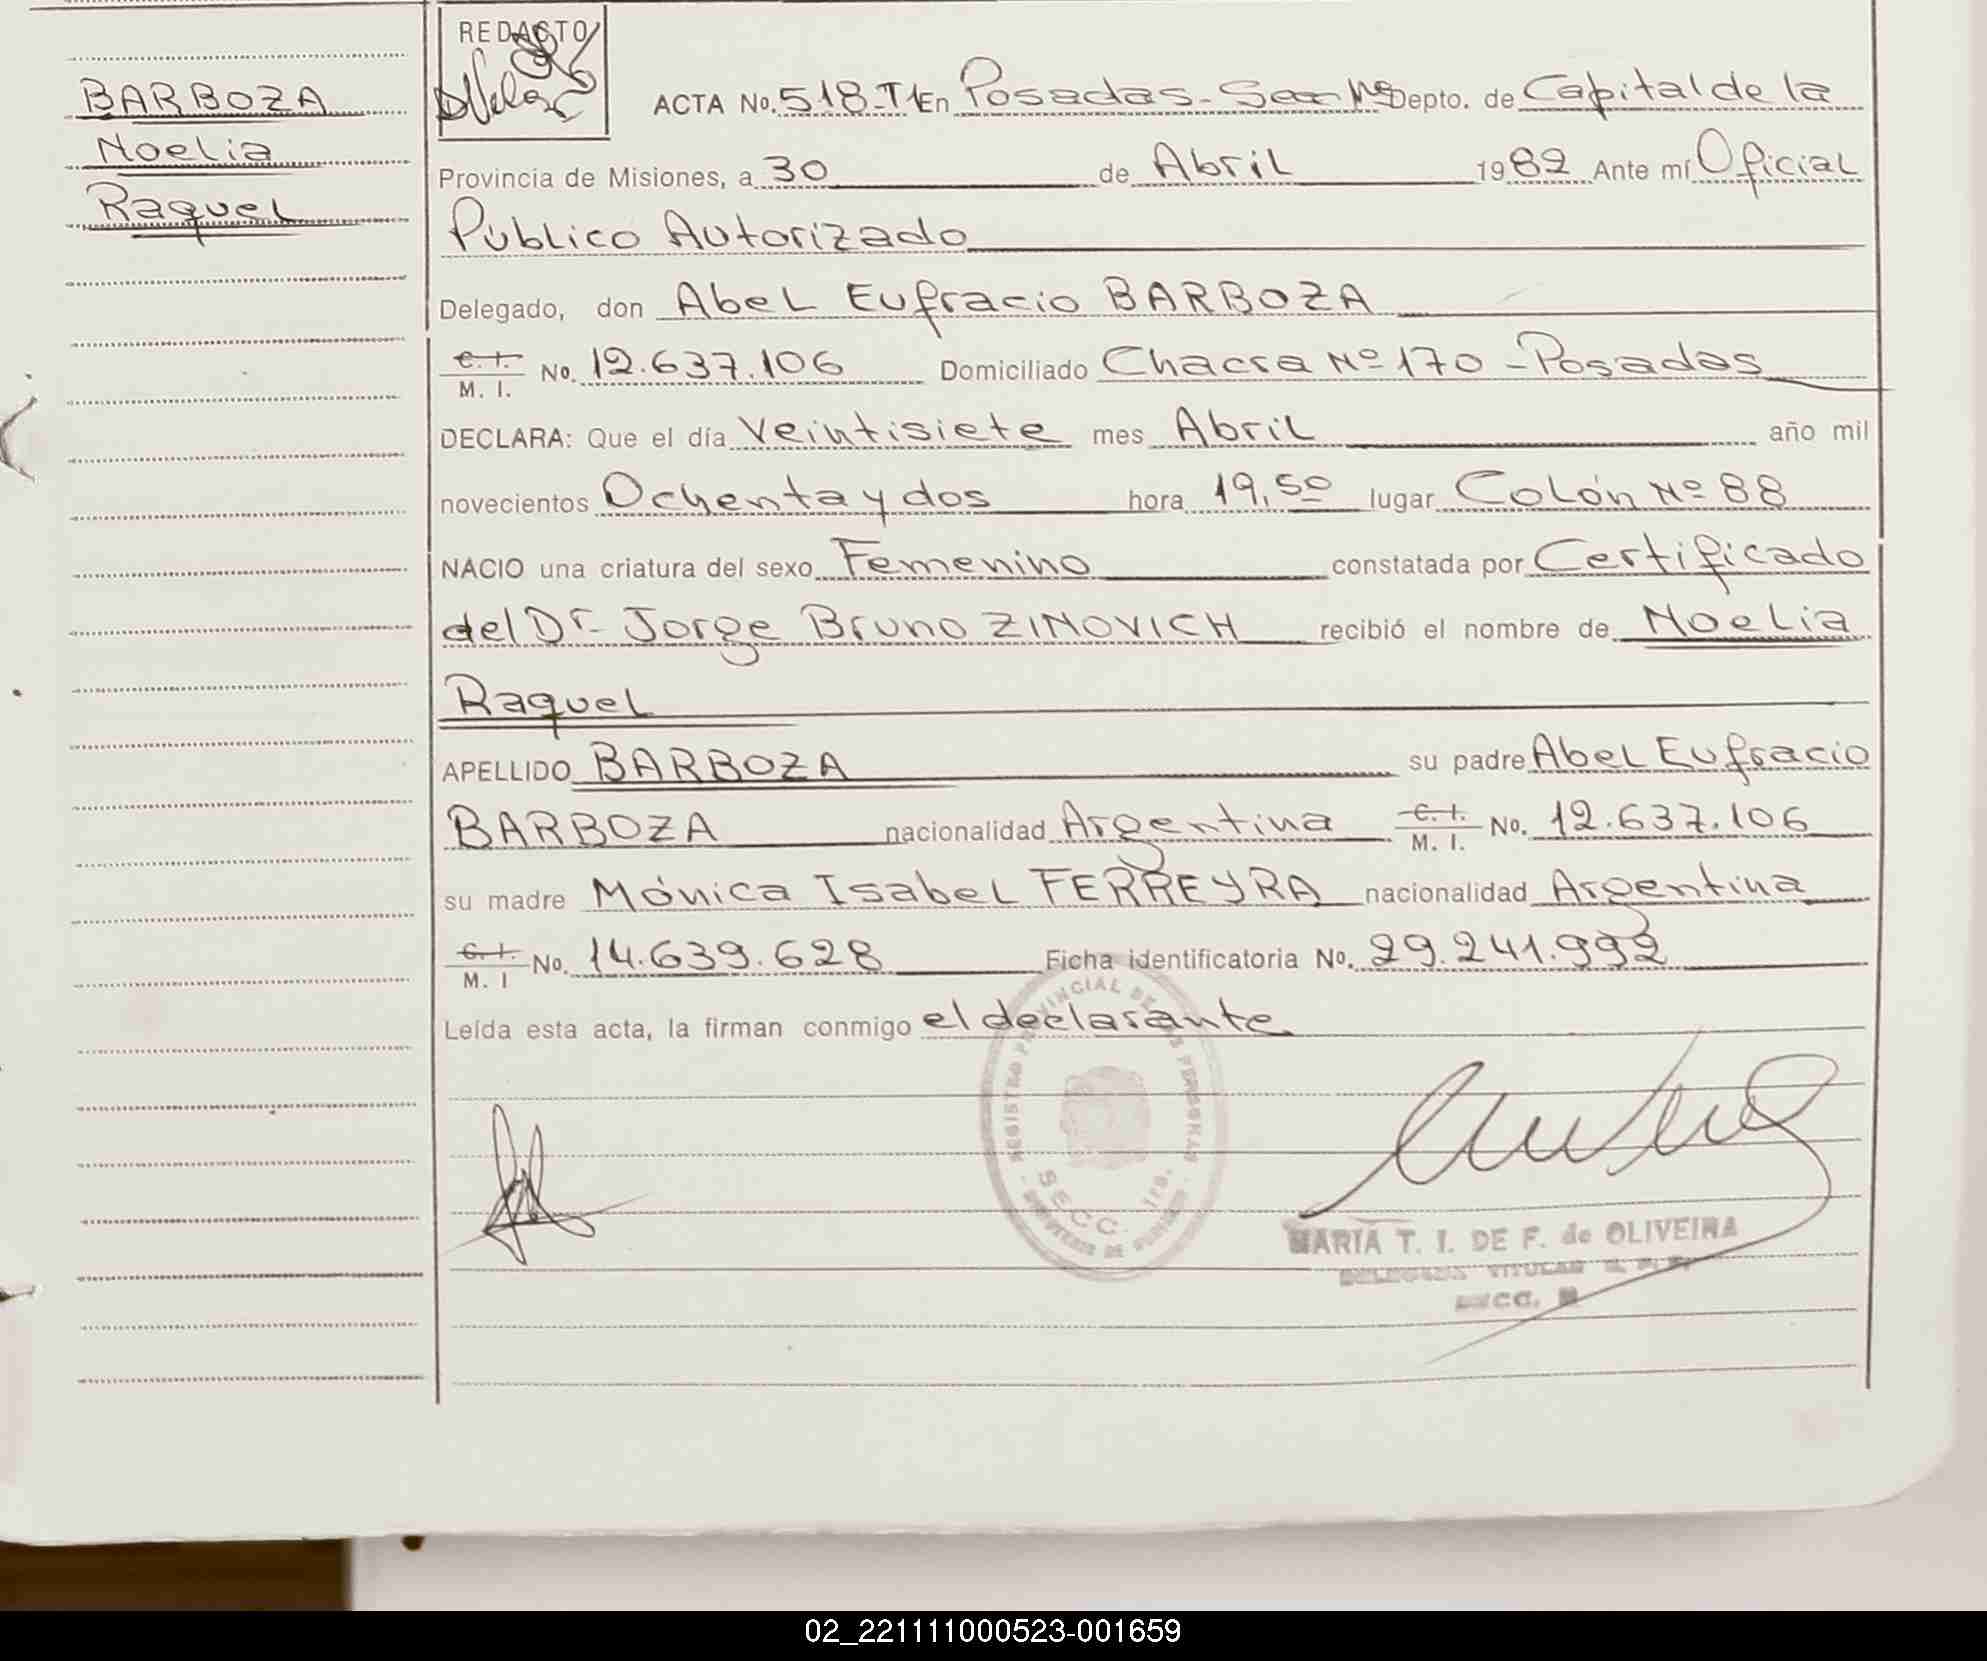 BARBOZA
Noelia
Raquel
REDACTO
ACTA No. 518-T1 En Posadas- Depto. de Capital de la
Provincia de Misiones, a 30 de Abril 1982 Ante mí Oficial
Público Autorizado
Delegado, don Abel Eufracio BARBOZA
C. I. M. I. No. 12.637.106 Domiciliado Chacra Nº 170 - Posadas
DECLARA: Que el día veintisiete mes Abril año mil
novecientos Ochenta y dos hora 19,50 lugar Colón Nº 88
NACIO una criatura del sexo Femenino constatada por Certificado
del Dr. Jorge Bruno ZINOVICH recibió el nombre de Noelia
Raquel
APELLIDO BARBOZA su padre Abel Eufracio
BARBOZA nacionalidad Argentina C. I. M. I. No. 12.637.106
su madre Mónica Isabel FERREYRA nacionalidad Argentina
C. I. M. I No. 14.639.628 Ficha identificatoria No. 29.241.992
Leída esta acta, la firman conmigo el declarante
REGISTRO PROVINCIAL DE LAS PERSONAS
SECC. 1ra.
MARIA T. I. DE F. de OLIVEIRA
TITULAR
SECC.
02_221111000523-001659